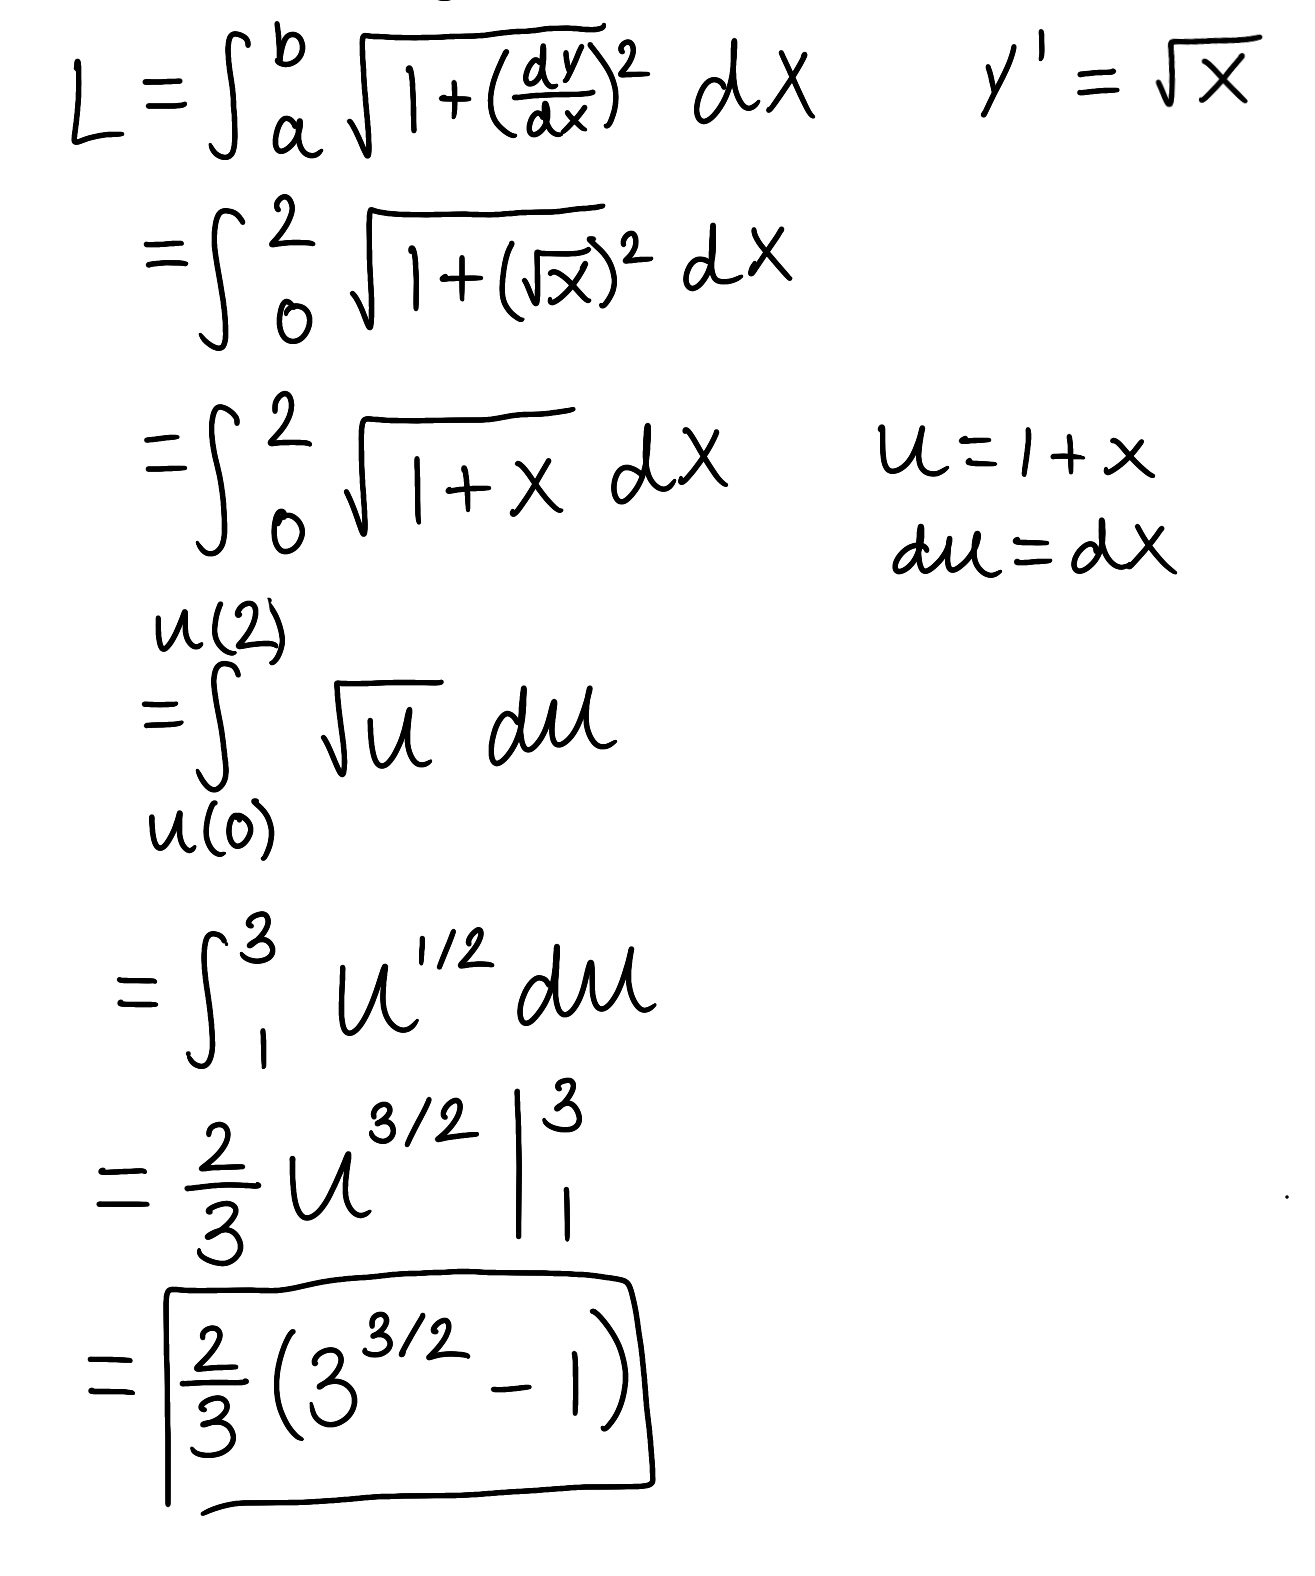 L = ∫_a^b √(1+(dy/dx)²) dx   y' = √x
= ∫_0^2 √(1+(√x)²) dx
= ∫_0^2 √(1+x) dx   u = 1+x
du = dx
= ∫_{u(0)}^{u(2)} √u du
= ∫_1^3 u^{1/2} du
= 2/3 u^{3/2} |_1^3
= 2/3 (3^{3/2} - 1)